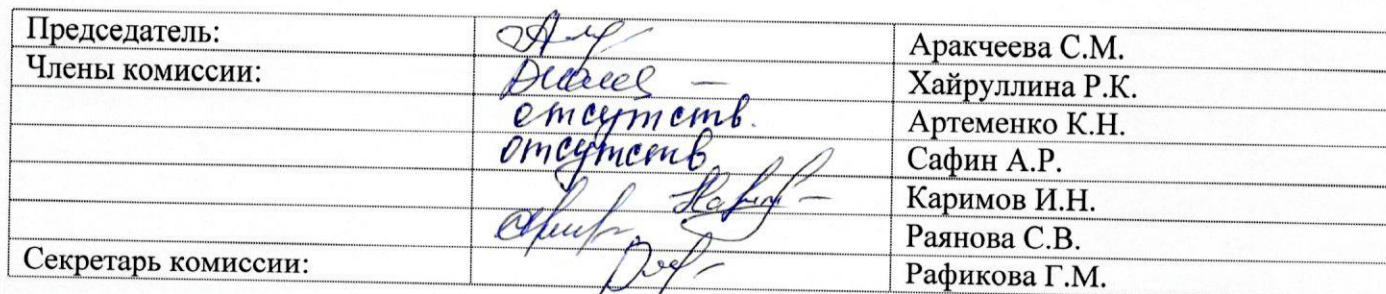 Председатель: Аракчеева С.М.
Члены комиссии: Хайруллина Р.К.
отсутств. Артеменко К.Н.
отсутств. Сафин А.Р.
Каримов И.Н.
Раянова С.В.
Секретарь комиссии: Рафикова Г.М.